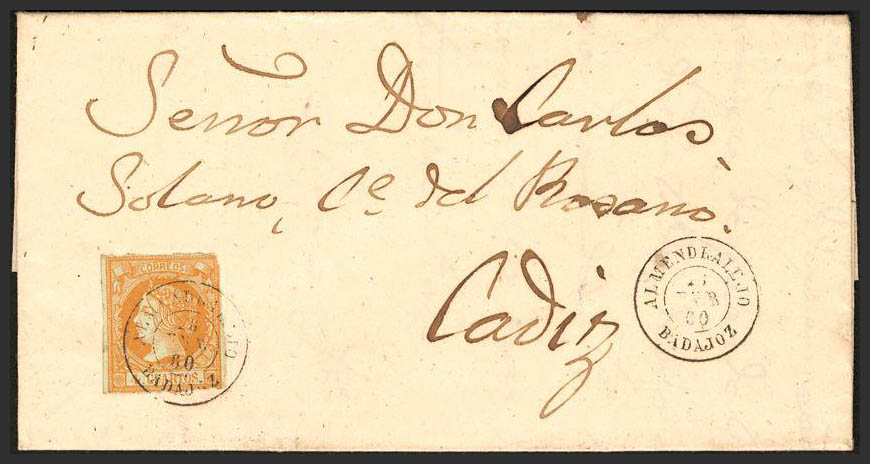 Señor Don Carlos
Solano, Ce del Rosario.
Cadiz
CORREOS
CUARTOS.
60
BADAJOZ
ALMENDRALEJO
60
BADAJOZ